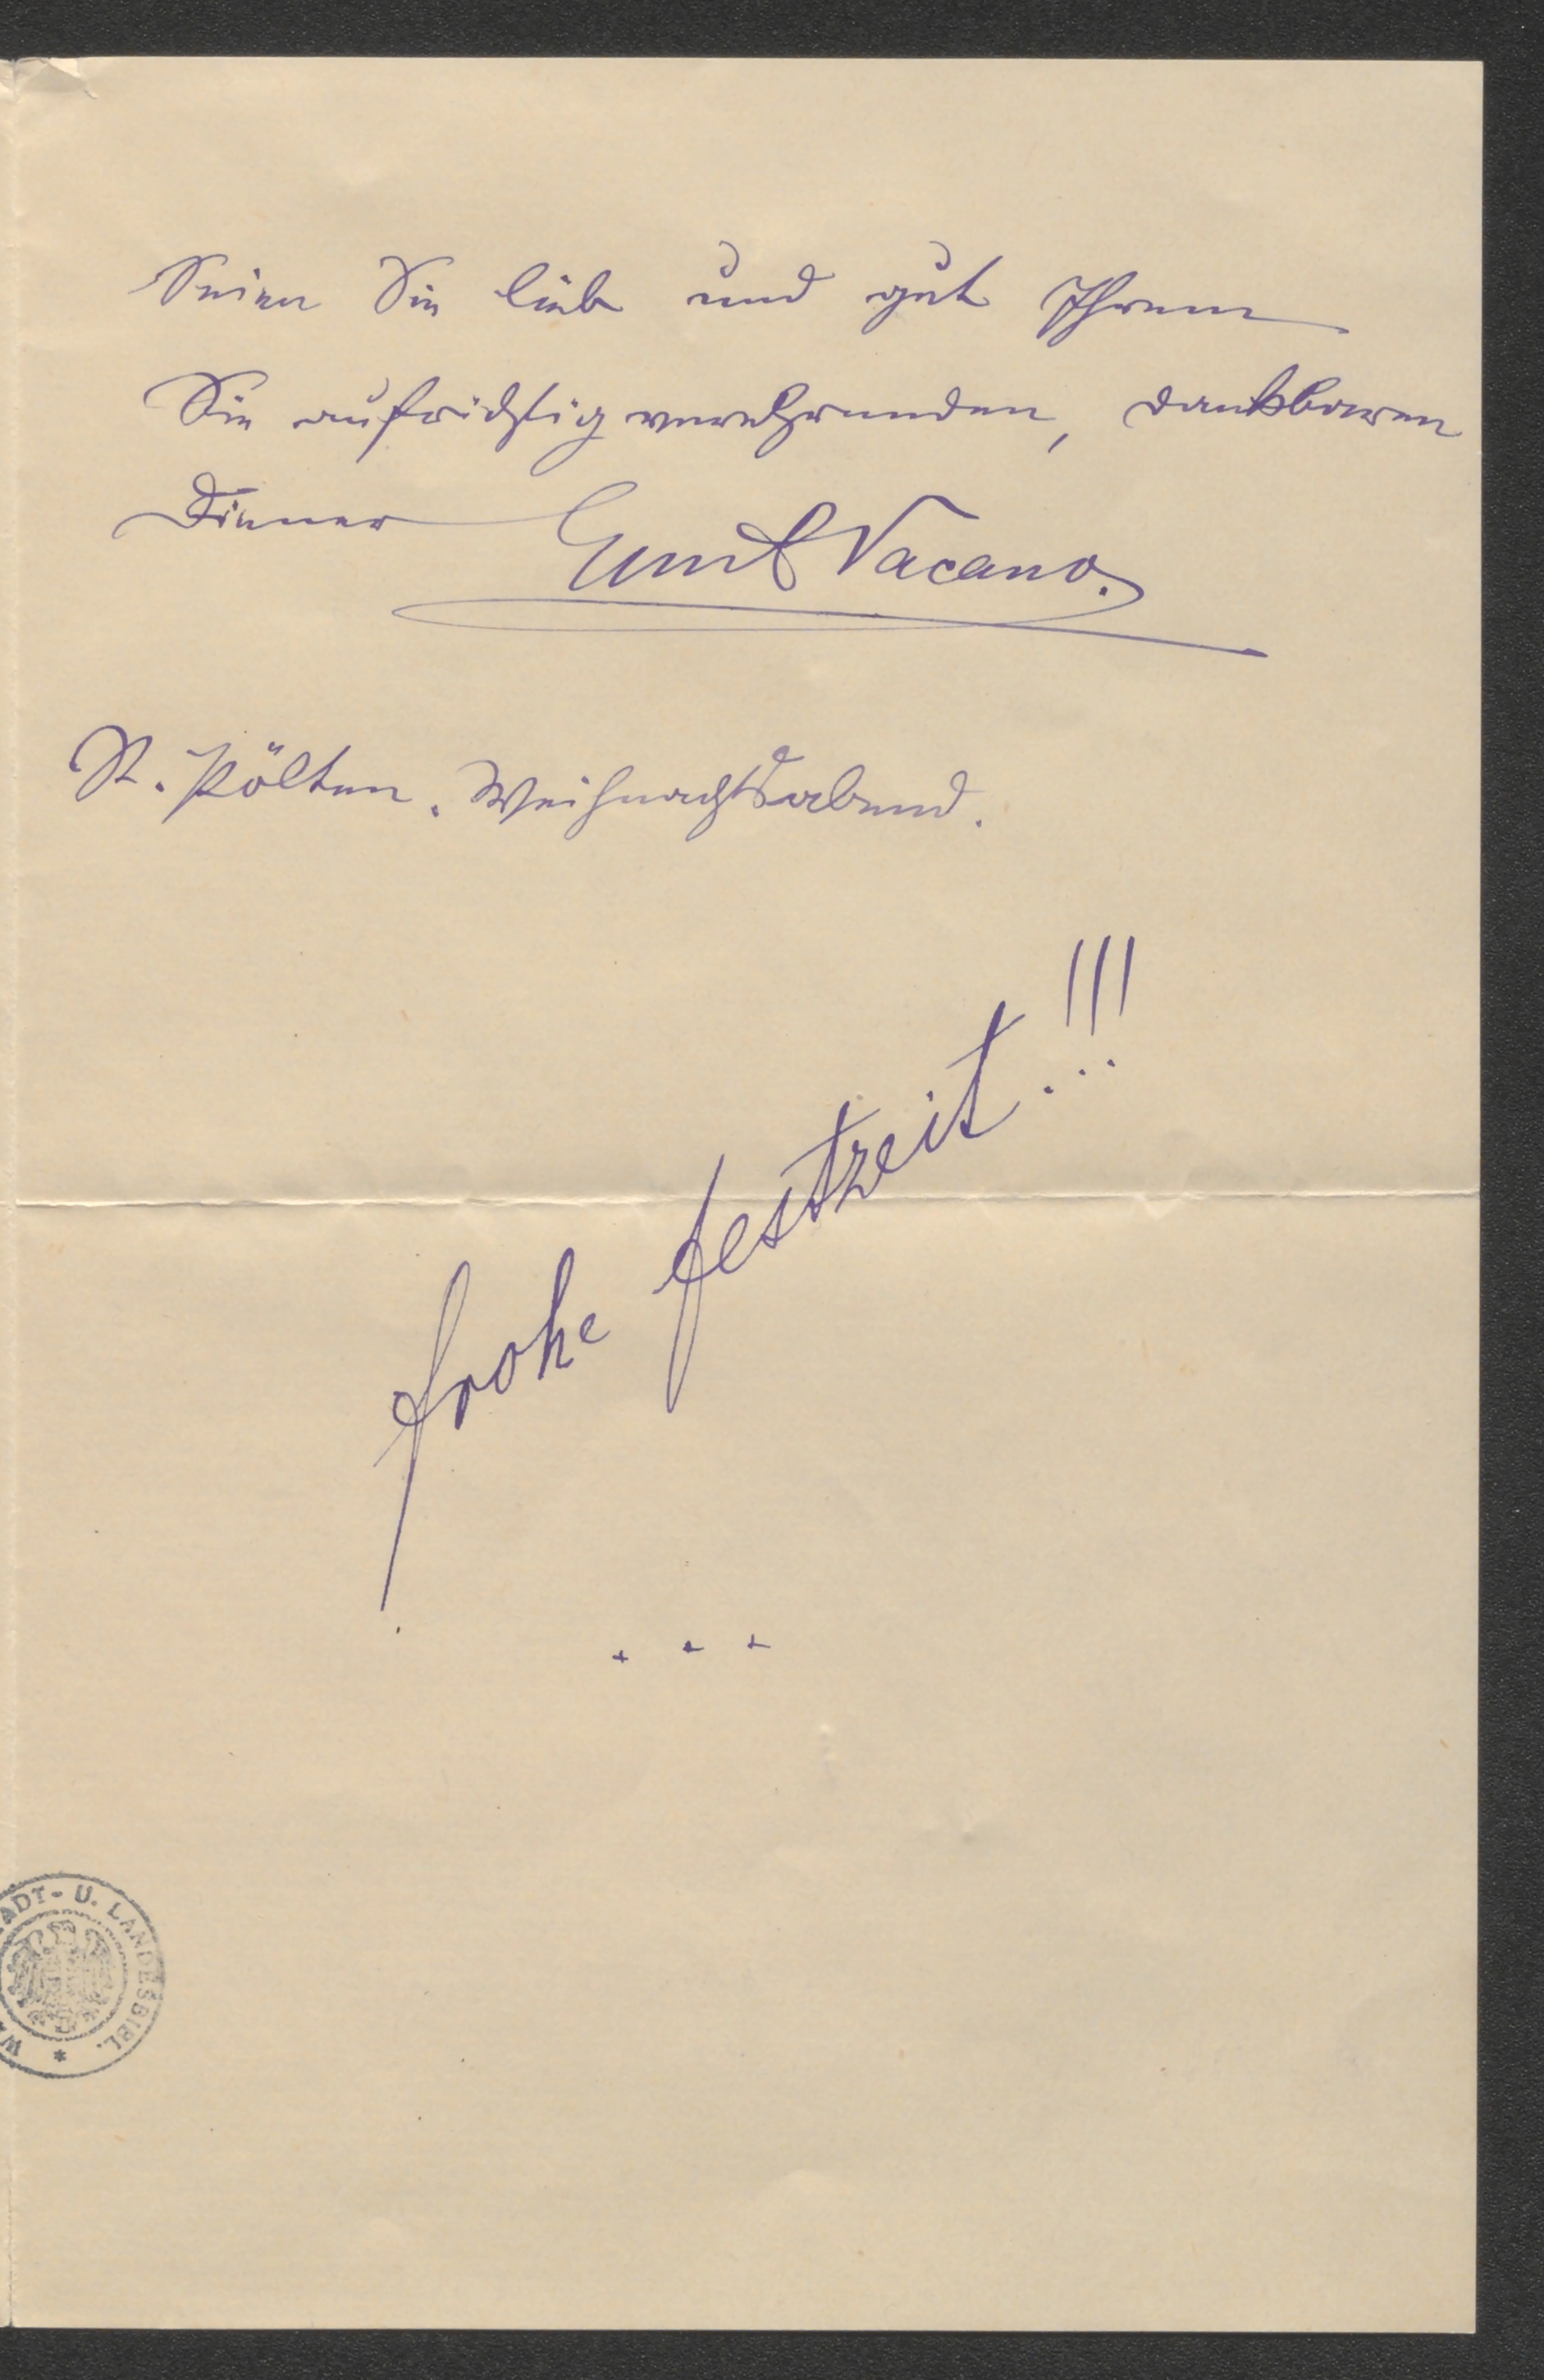 Seien Sie lieb und gut Ihrem
Sie aufrichtig verehrenden, dankbaren
Diener Emil Vacano.
St. Pölten. Weihnachtsabend.
frohe festzeit!!!
ADT- U. LANDESBIBL.